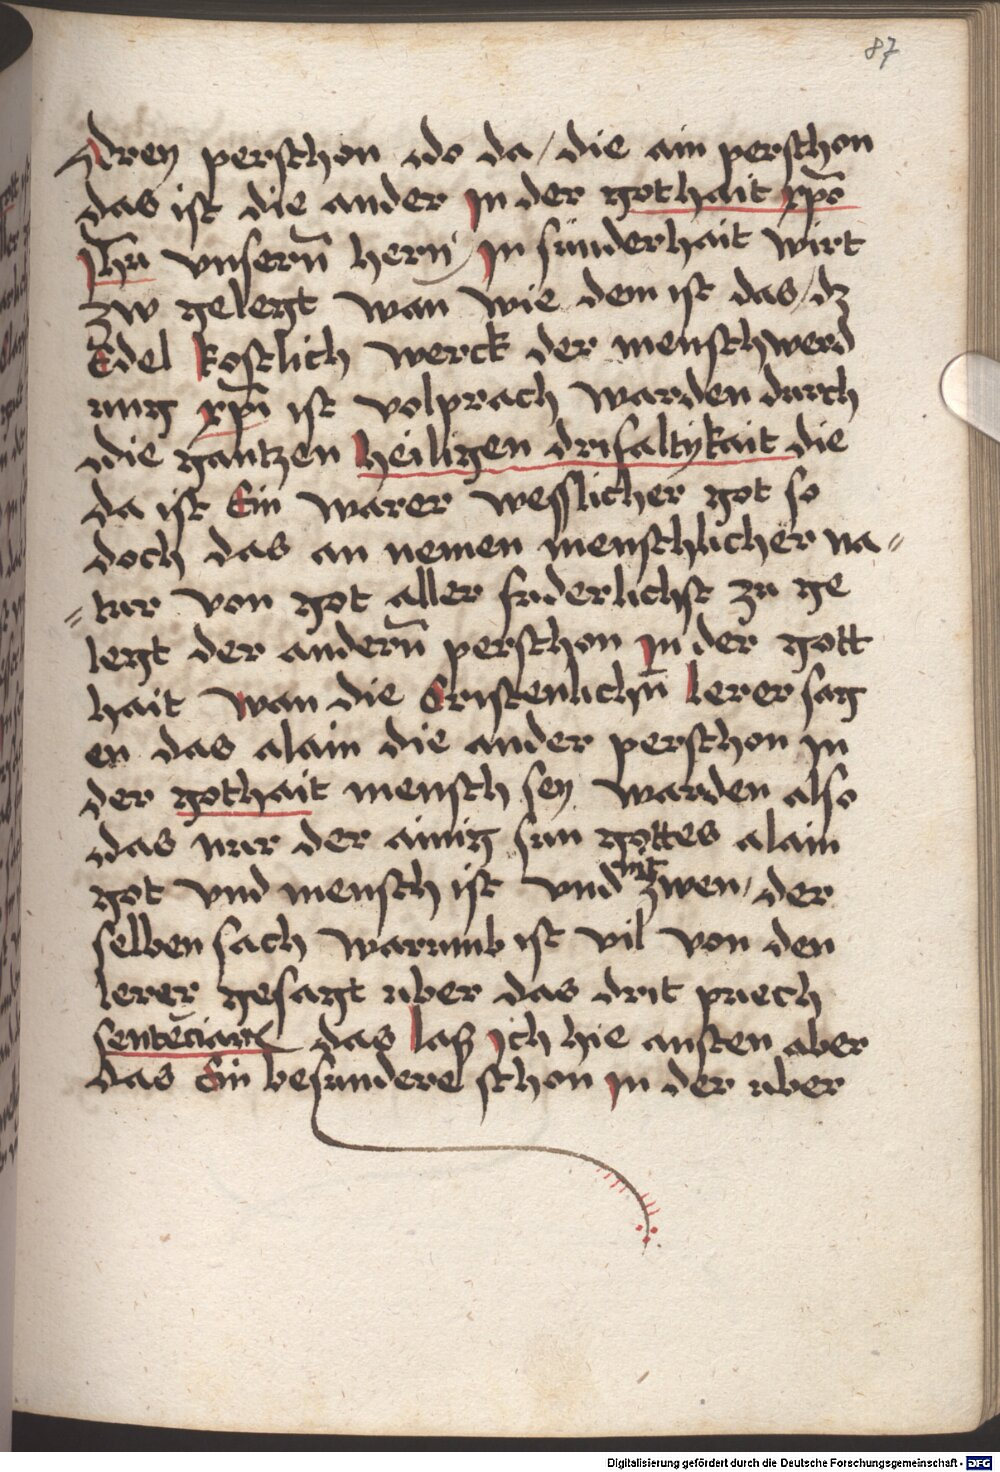 87
drey perschon do da / die ain perschon
das ist die ander jn der gothait xp̄o
jhū vnsern̄ hern / jn sunderhait wirt
zw gelegt wan wie dem ist das / dz
Edel kostlich werck der menschwerd
ung xp̄i ist volprach warden durch
die gantzen heiligen drifaltykait die
da ist Ein warer wesslicher got so
doch das an nemen menschlicher na⸗
⸗tur von got aller fuderlichst zu ge
legt der andern̄ perschon jn der gott
hait wan die Cristenlichn̄ lerer sag
en das alain die ander perschon jn
der gothait mensch sey warden also
das nur der ainig sun gottes alain
got vnd mensch ist vnd nit zwen / der
selben sach warumb ist vil von den
lerer gesagt uber das drit puech
das laß jch hie ansten aber
das Ein besundere schon jn der uber
Digitalisierung gefördert durch die Deutsche Forschungsgemeinschaft - DFG